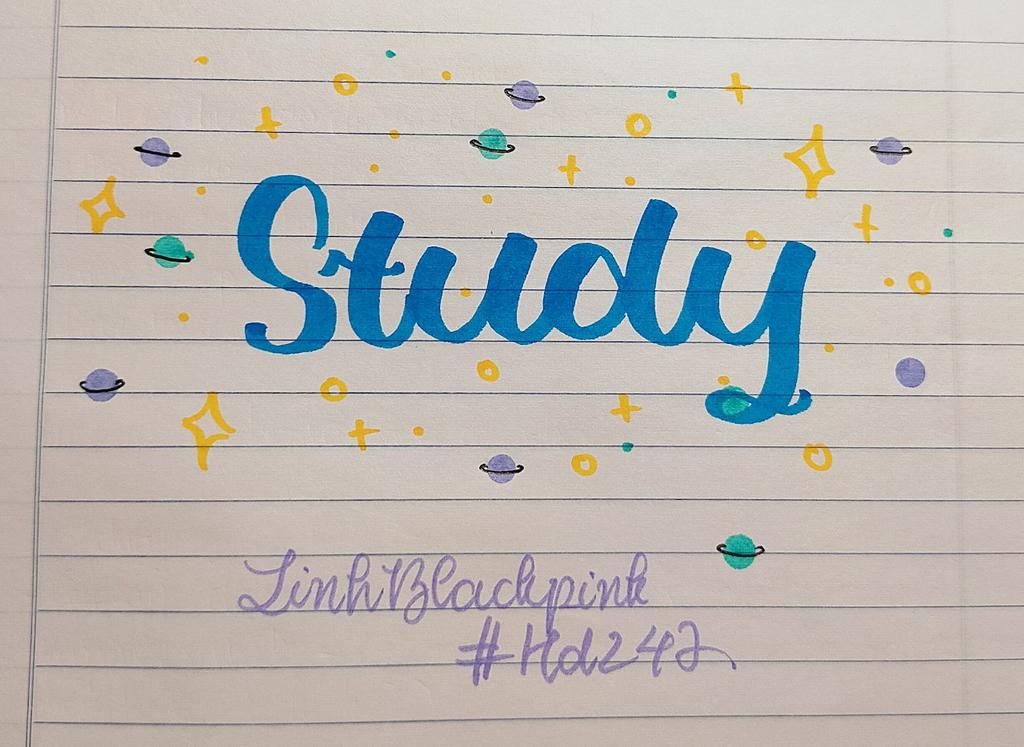 Study
LinhBlackpink
#Hd242